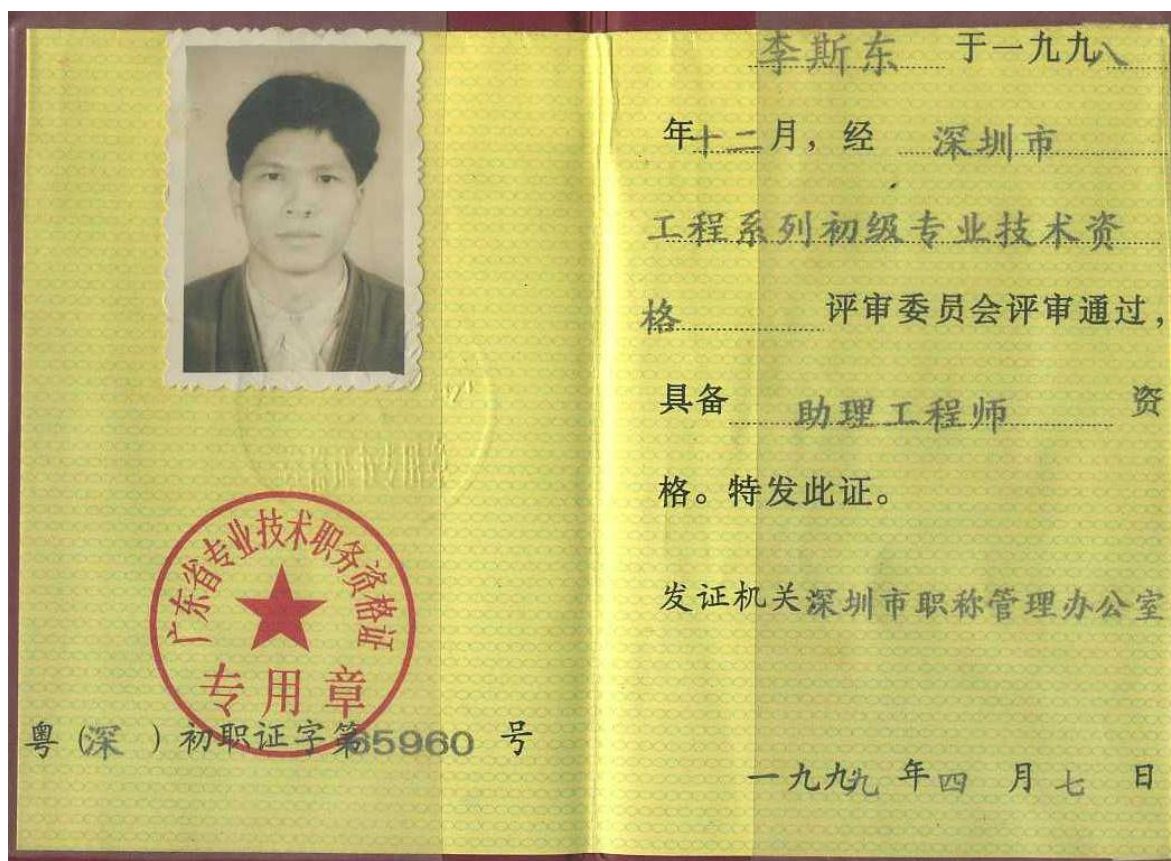 广东省专业技术职务资格证
专用章
粤（深）初职证字第65960号
李斯东 于一九九八
年十二月，经 深圳市
工程系列初级专业技术资
格 评审委员会评审通过，
具备 助理工程师 资
格。特发此证。
发证机关深圳市职称管理办公室
一九九九年四月七日